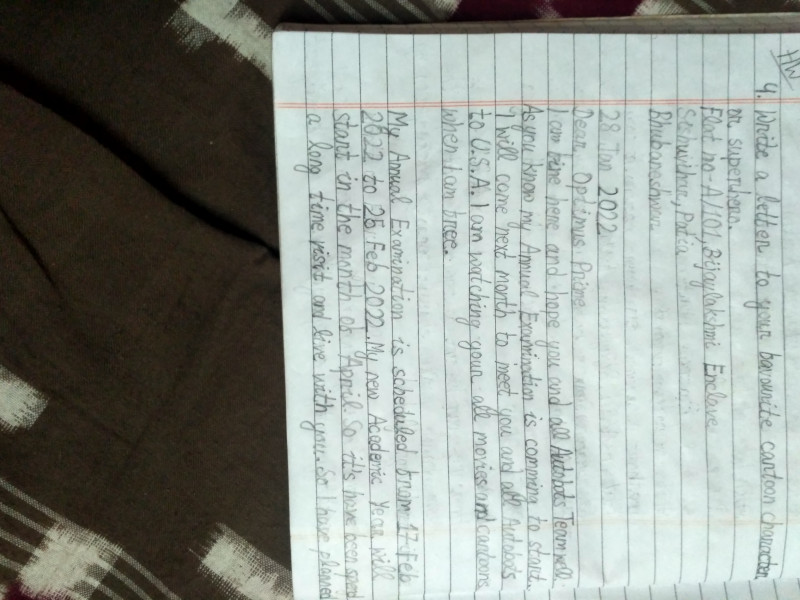 HW
4. Write a letter to your favourite cartoon character
or superhero.
Flat no-A/101, Bijaylakshmi Enclave
Satyavihar, Patia
Bhubaneshwar
28 Jan 2022
Dear Optimus Prime
I am fine here and hope you and all Autobots Team well.
As you know my Annual Examination is comming to start.
I will come next month to meet you and all Autobots
to U.S.A. I am watching your all movies and cartoons
when I am free.
My Annual Examination is scheduled from 17 Feb
2022 to 25 Feb 2022. My new Academic Year will
start in the month of April. So it's have been
a long time visit and live with you. So I have planned